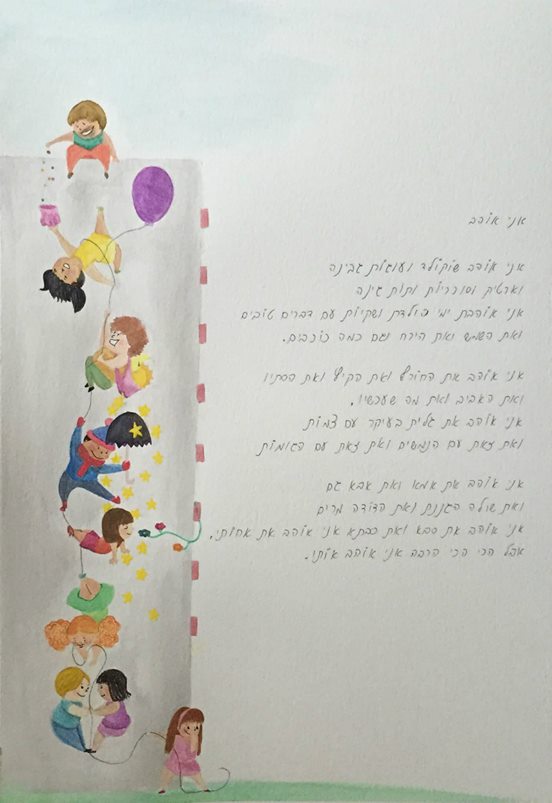 אני אוהב
אני אוהב שוקולד ועוגות גבינה
וארטיק וסוכריות ותות גינה
אני אוהבת ימי הולדת ושקיות עם דברים טובים
ואת השמש ואת הירח וגם כמה כוכבים.
אני אוהב את החורף ואת הקיץ ואת הסתיו
ואת האביב ואת מה שעכשיו.
אני אוהב את גלית בעיקר עם צמות
ואת זאת עם הנמשים ואת זאת עם הגומות
אני אוהב את אמא ואת אבא גם
ואת שולה הגננת ואת הדודה מרים
אני אוהב את סבא ואת סבתא אני אוהב את אחותי,
אבל הכי הכי הרבה אני אוהב אותי.